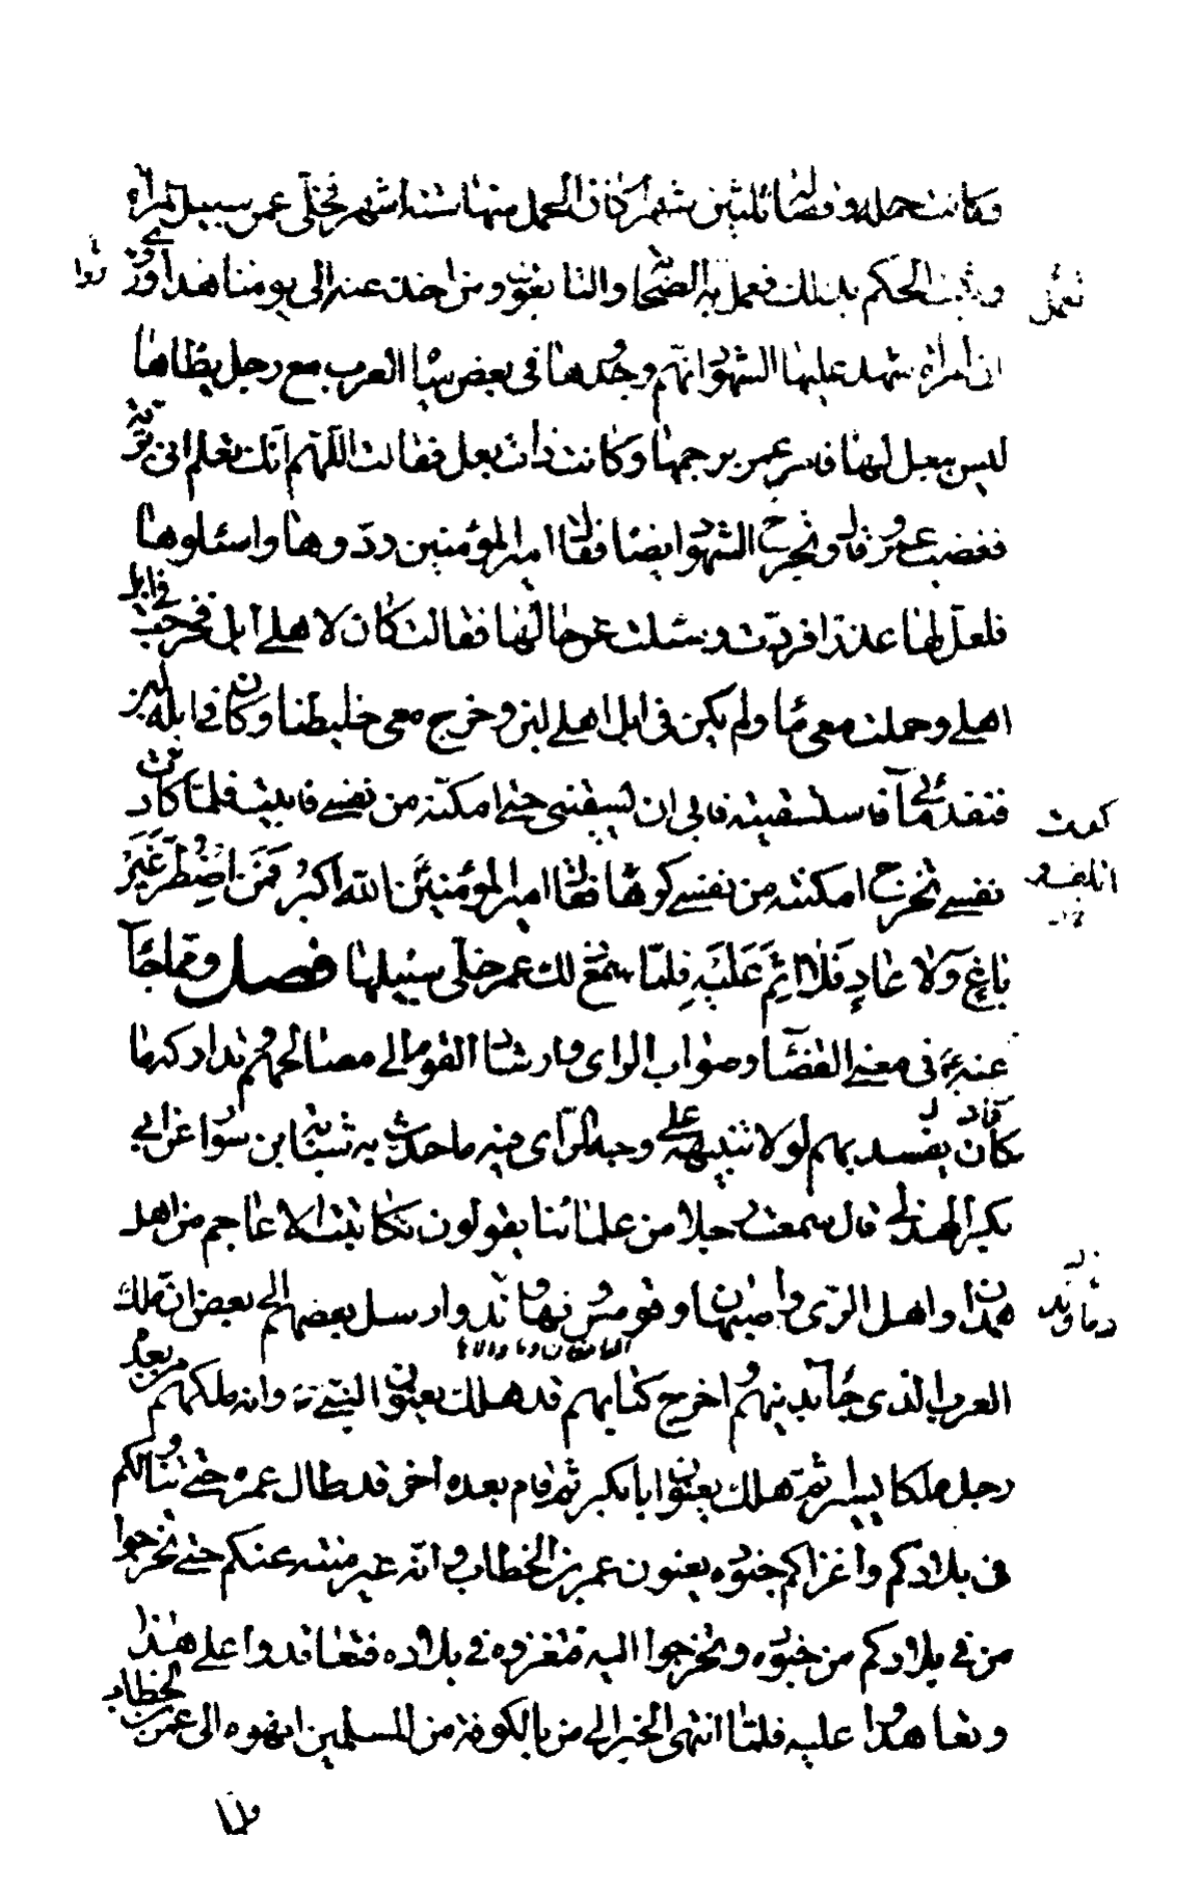 وكانت حمله وفصاله ثلثين شهرا كان الحمل منها ستة اشهر فخلى عمر سبيل المراة
وثبت الحكم بذلك فعمل به الصحابة والتابعون ومن اخذ عنه الى يومنا هذا وروى
ان امراة شهد عليها الشهود انهم وجدوها في بعض مياه العرب مع رجل يطأها
ليس ببعل لها فامر عمر برجمها وكانت ذات بعل فقالت اللهم انك تعلم اني بريئة
فغضب عمر وقال وتجرح الشهود ايضا فقال امير المؤمنين ردوها واسئلوها
فلعل لها عذرا فردت وسئلت عن حالها فقالت كان لاهلي ابل فخرجت في ابل
اهلي وحملت معي ماء ولم يكن في ابل اهلي لبن وخرج معي خليطنا وكان في ابله لبن
فنفد مائي فاستسقيته فابى ان يسقيني حتى امكنه من نفسي فابيت فلما كادت
نفسي تخرج امكنته من نفسي كرها فقال امير المؤمنين الله اكبر فَمَنِ اضْطُرَّ غَيْرَ
بَاغٍ وَلَا عَادٍ فَلَا اِثْمَ عَلَيْهِ فلما سمع ذلك عمر خلى سبيلها فصل ومما جاء
عنه ع في معنى القضاء وصواب الراى وارشاد القوم الى مصالحهم وتداركه ما
كاد يفسد بهم لولا تنبيهه على وجه الراى فيه ما حدث به شبابة بن سوار عن ابي
بكر الهذلي قال سمعت رجلا من علمائنا يقولون تكاتبت الاعاجم من اهل
همدان واهل الرى واصبهان وقومس ونهاوند وارسل بعضهم الى بعض ان ملك
دماوند
العرب الذى جاء بدينهم واخرج كتابهم قد هلك يعنون النبي ص وانه ملكهم من بعده
رجل ملكا يسيرا ثم هلك يعنون ابا بكر ثم قام بعده اخر قد طال عمره حتى تناولكم
في بلادكم واغزاكم جنوده يعنون عمر بن الخطاب وانه غير منته عنكم حتى تخرجوا
من في بلادكم من جنوده وتخرجوا اليه فتغزوه في بلاده فتعاقدوا على هذا
وتعاهدوا عليه فلما انتهى الخبر الى من بالكوفة من المسلمين انهوه الى عمر بن الخطاب
فلما